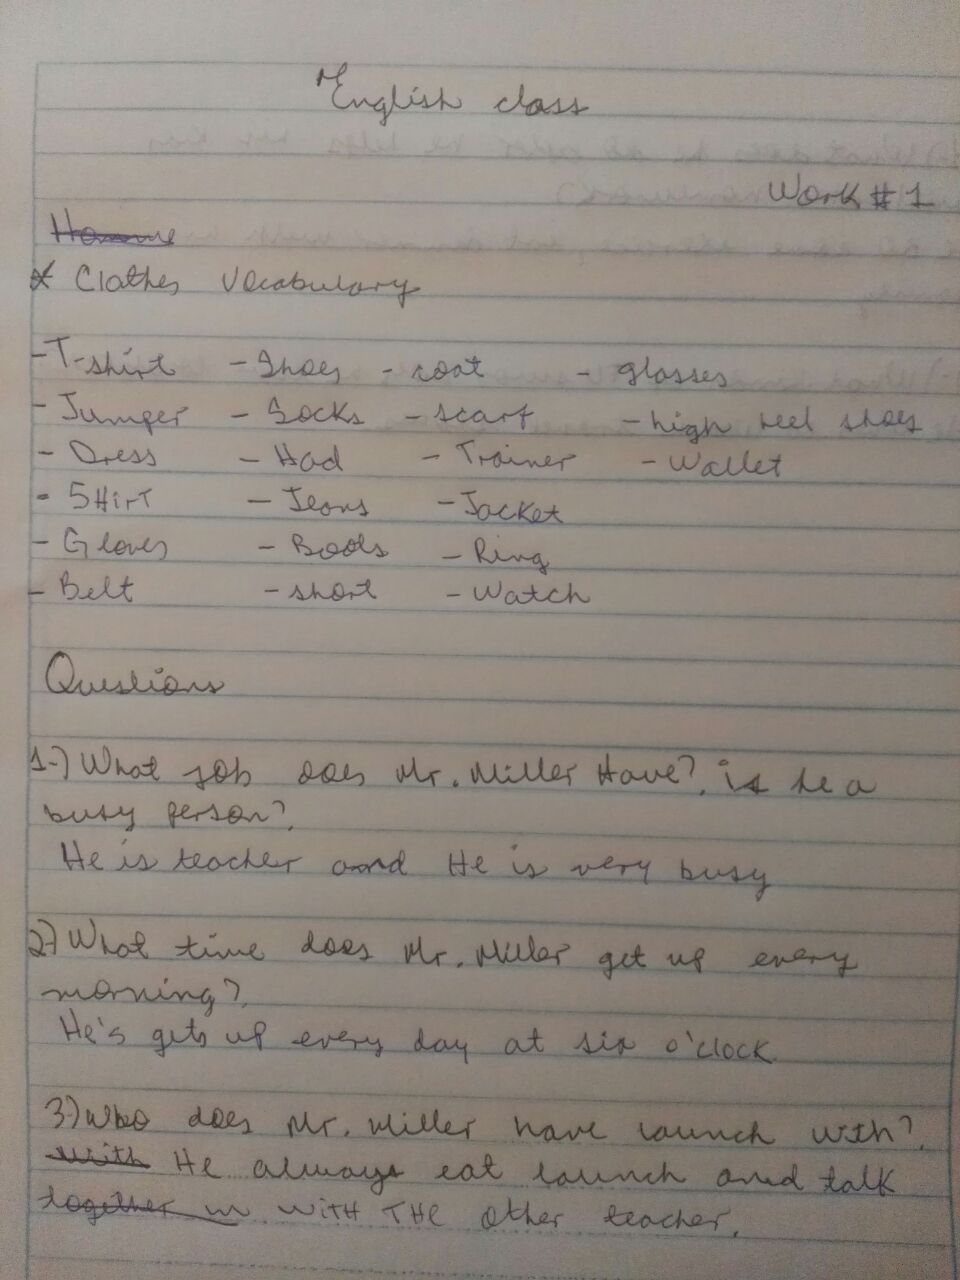 English class
Work # 1
* Clothes Vocabulary
- T-shirt - Shoes - coat - glasses
- Jumper - Socks - scarf - high heel shoes
- Dress - Had - Trainer - Wallet
- SHirT - Jeans - Jacket
- Gloves - Boots - Ring
- Belt - short - Watch
Questions
1-) What job does Mr. Miller Have?, is he a
busy person?,
He is teacher and He is very busy
2-) What time does Mr. Miller get up every
morning?,
He's gets up every day at six o'clock
3-) Who does Mr. Miller have launch with?,
with He always eat launch and talk
together in WITH THE other teacher.